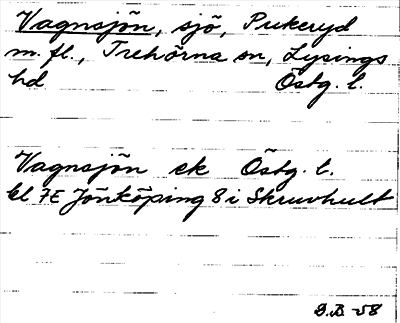 Vagnsjön, sjö, Pukeryd
m. fl., Trehörna sn, Lysings
hd Östg. l.
Vagnsjön ek Östg. l.
bl 7E Jönköping 8 i Skruvhult
G.B. -58